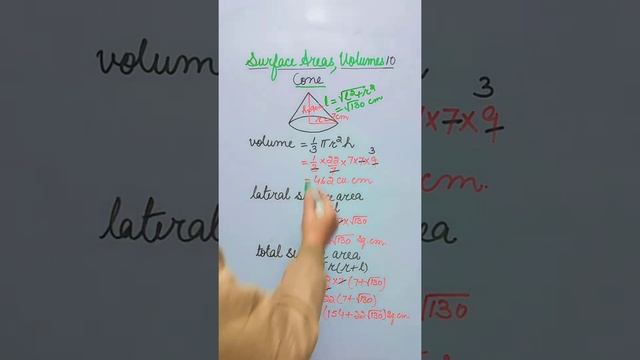 Surface Areas, Volumes 10
Cone
l = √l²+r²
= √130 cm
h
r = 7cm
volume = 1/3 πr²h
= 1/3 × 22/7 × 7×7×9 3
= 462 cu cm
lateral surface area
l
×√130
√130 sq.cm
total surface area
πr(r+l)
×7 (7+√130)
22(7+√130)
(154+22√130) sq.cm
volum
3
×7×9
lateral
√130